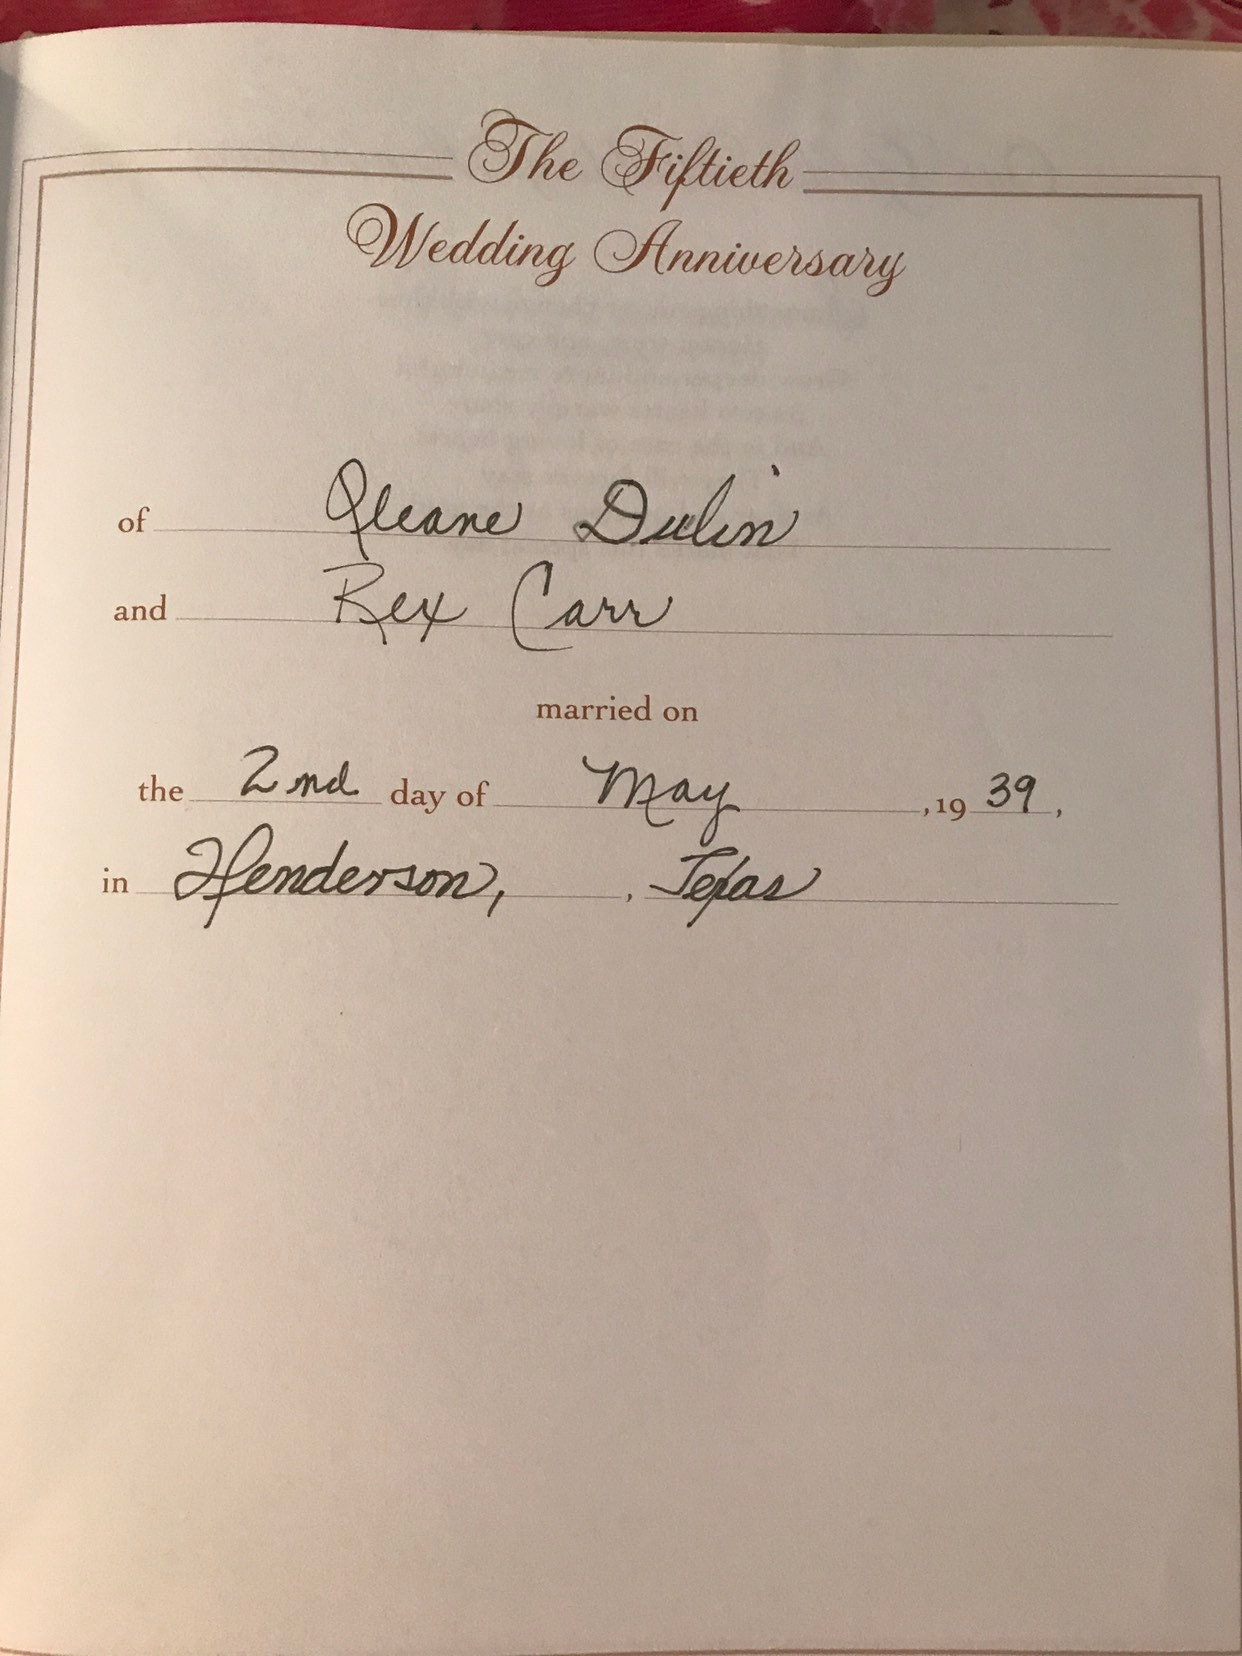 The Fiftieth
Wedding Anniversary
of Oleane Dulin
and Rex Carr
married on
the 2nd day of May, 1939,
in Henderson, , Texas